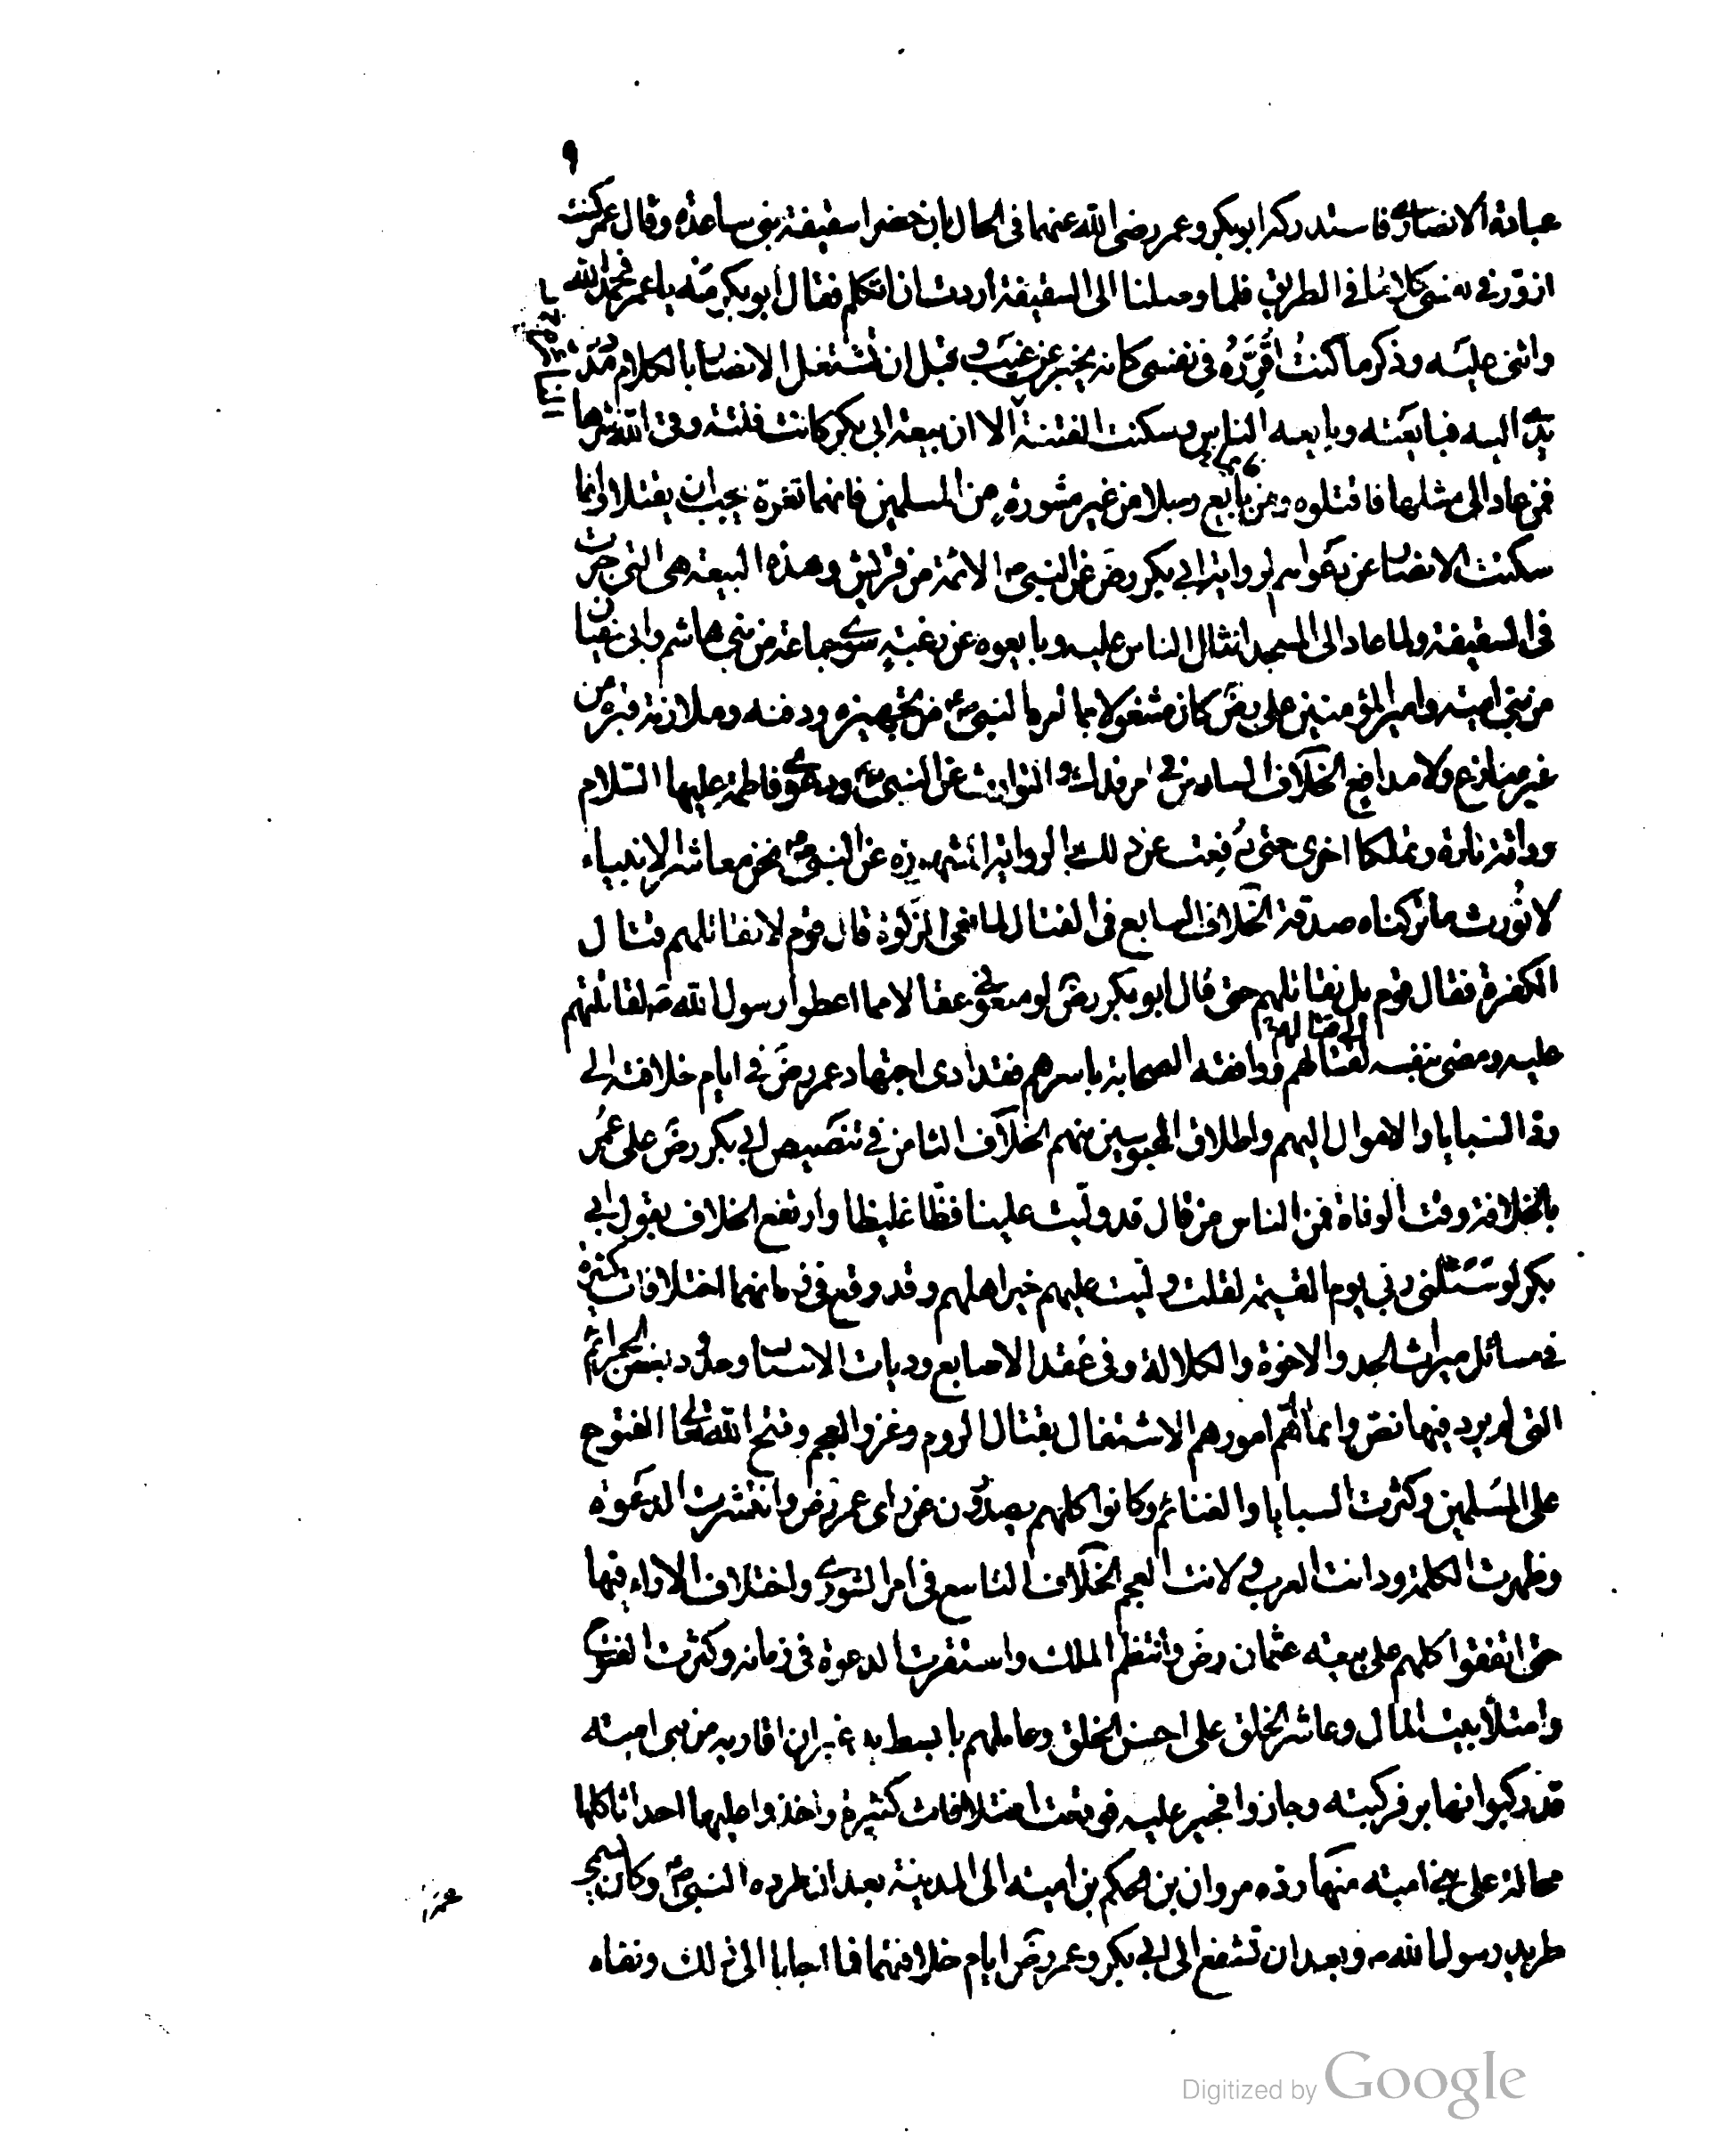 ٩
عبادة الانصاري فاستدركه ابوبكر وعمر رضى الله عنهما فى الحال بان حضرا سقيفة بنى ساعدة وقال عمر كنت
ازوّر فى نفسى كلاما فى الطريق فلما وصلنا الى السقيفة اردت ان اتكلم فقال ابوبكر مَه يا عمر فحمد الله
واثنى عليه وذكر ما كنتُ اقدّره فى نفسى كانه يخبر عن غيب وقبل ان تشتغل الانصار بالكلام مدَدت
يدى اليه فبايعته وبايعه الناس وسكنت الفتنة الا ان بيعة ابى بكر كانت فلتة وقى الله شرها
فمن عاد الى مثلها فاقتلوه ومن بايع رجلا من غير مشورة من المسلمين فانهما تغرة يجب ان يقتلا وانما
سكنت الانصار عن دعواهم لرواية ابى بكر رض عن النبى ص الائمة من قريش وهذه البيعة هى التى جرت
فى السقيفة ولما عاد الى المسجد انثال الناس عليه وبايعوه عن رغبة سوى جماعة من بنى هاشم وابى سفيان
من بنى امية وامير المؤمنين على رض كان مشغولا بما امره النبى ص من تجهيزه ودفنه وملازمة قبره من
غير منازع ولا مدافع الخلاف السادس فى امر فدك والتوارث عن النبى ص ودعوى فاطمة عليها السلام
وراثة تارة وتملكا اخرى حتى دُفعت عن ذلك بالرواية المشهورة عن النبى ص نحن معاشر الانبياء
لا نُورث ما تركناه صدقة الخلاف السابع فى القتال لمانعى الزكوة قال قوم لا نقاتلهم قتال
الكفرة فقال قوم بل نقاتلهم حتى قال ابو بكر رض لو منعونى عقالا مما اعطوا رسول الله ص لقاتلتهم
الى قتالهم
عليه ومضى بنفسه لقتالهم ووافقه الصحابة باسرهم فقد ادى اجتهاد عمر رض فى ايام خلافته الى
رد السبايا والاموال اليهم واطلاق المحبوسين منهم الخلاف الثامن فى تنصيص ابى بكر رض على عمُر
بالخلافة وقت الوفاة فمن الناس من قال قد ولّيت علينا فظّا غليظا وارتفع الخلاف بقول ابى
بكر لو سَئَلنى ربى يوم القيمة لقلت ولّيت عليهم خير اهلهم وقد وقع فى زمانهما اختلافات كثيرة
فى مسائل ميراث الجد والاخوة والكلالة وفى عقد الاصابع وديات الاسنان وحدود بعض الجرائم
التى لم يرد فيها نص وانما اهم امورهم الاشتغال بقتال الروم وغزو العجم وفتح الله تعالى الفتوح
على المسلمين وكثرت السبايا والغنائم وكانوا كلهم يصدرون عن راى عمر رض وانتشرت الدعوة
وظهرت الكلمة ودانت العرب ولانت العجم الخلاف التاسع فى امر الشورى واختلاف الاراء فيها
حتى اتفقوا كلهم على بيعة عثمان رض وانتظم الملك واستقرت الدعوة فى زمانه وكثرت الفتوح
وامتلأ بيت المال وعاشر الخلق على احسن الخلق وعاملهم بابسط يد غير ان اقاربه من بنى امية
قد ركبوا نهابر فركبته وجازوا فجير عليه فوقعت اختلافات كثيرة واخذوا عليها احداثا كلها
محالة على بنى امية منها رده مروان بن حكم بن امية الى المدينة بعد ان طرده النبى ص وكان يسمى
طريد رسول الله ص وبعد ان تشفع الى ابى بكر وعمر رض ايام خلافتهما فما اجابا الى ذلك ونفاه
عمر
Digitized by Google